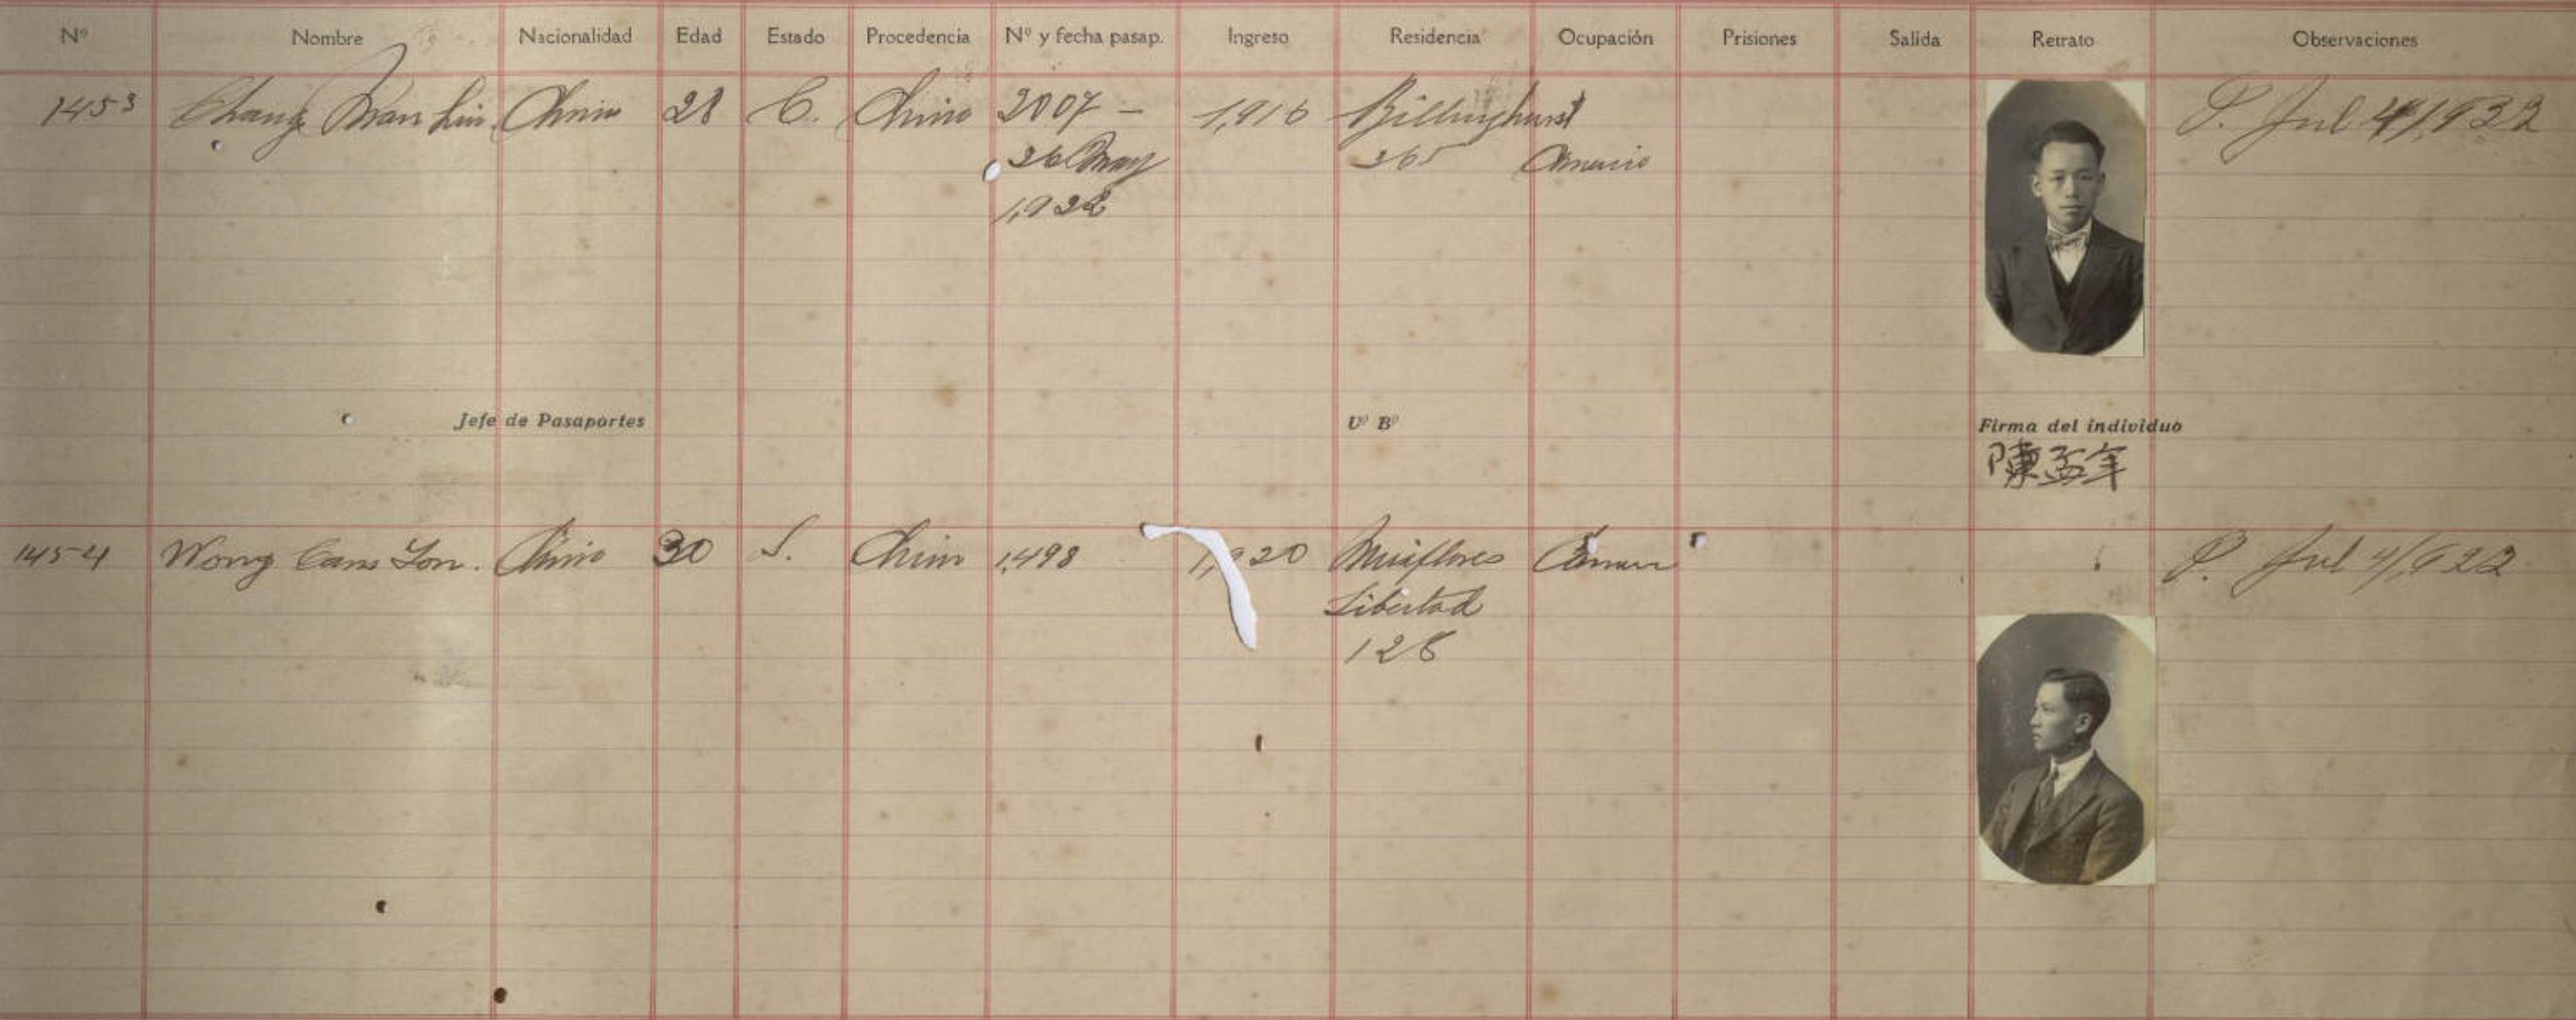 Nº Nombre Nacionalidad Edad Estado Procedencia Nº y fecha pasap. Ingreso Residencia Ocupación Prisiones Salida Retrato Observaciones
1453 Chang Man Lin. Chino 28 C. China 2007 - 1,916 Billinghurst P. Jul 4/1932
26 May 365 Comercio
1,922
Jefe de Pasaportes Vº Bº Firma del individuo
陳孟年
1454 Wong Cam Lon. Chino 30 S. China 1,498 1,920 Miraflores P. Jul 4/922
Libertad
128